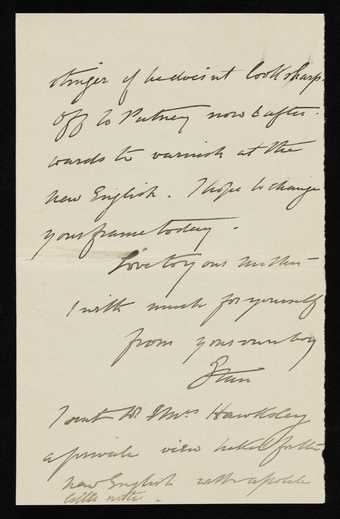 stinger if he doesn't look sharp.
Off to Putney now & after-
wards to varnish at the
new English. I hope to change
your frame today.
Love to your mother
& with much for yourself
from your own boy
I sent Dr & Mrs Hawksley
a private view ticket for the
new English with a polite
little note.